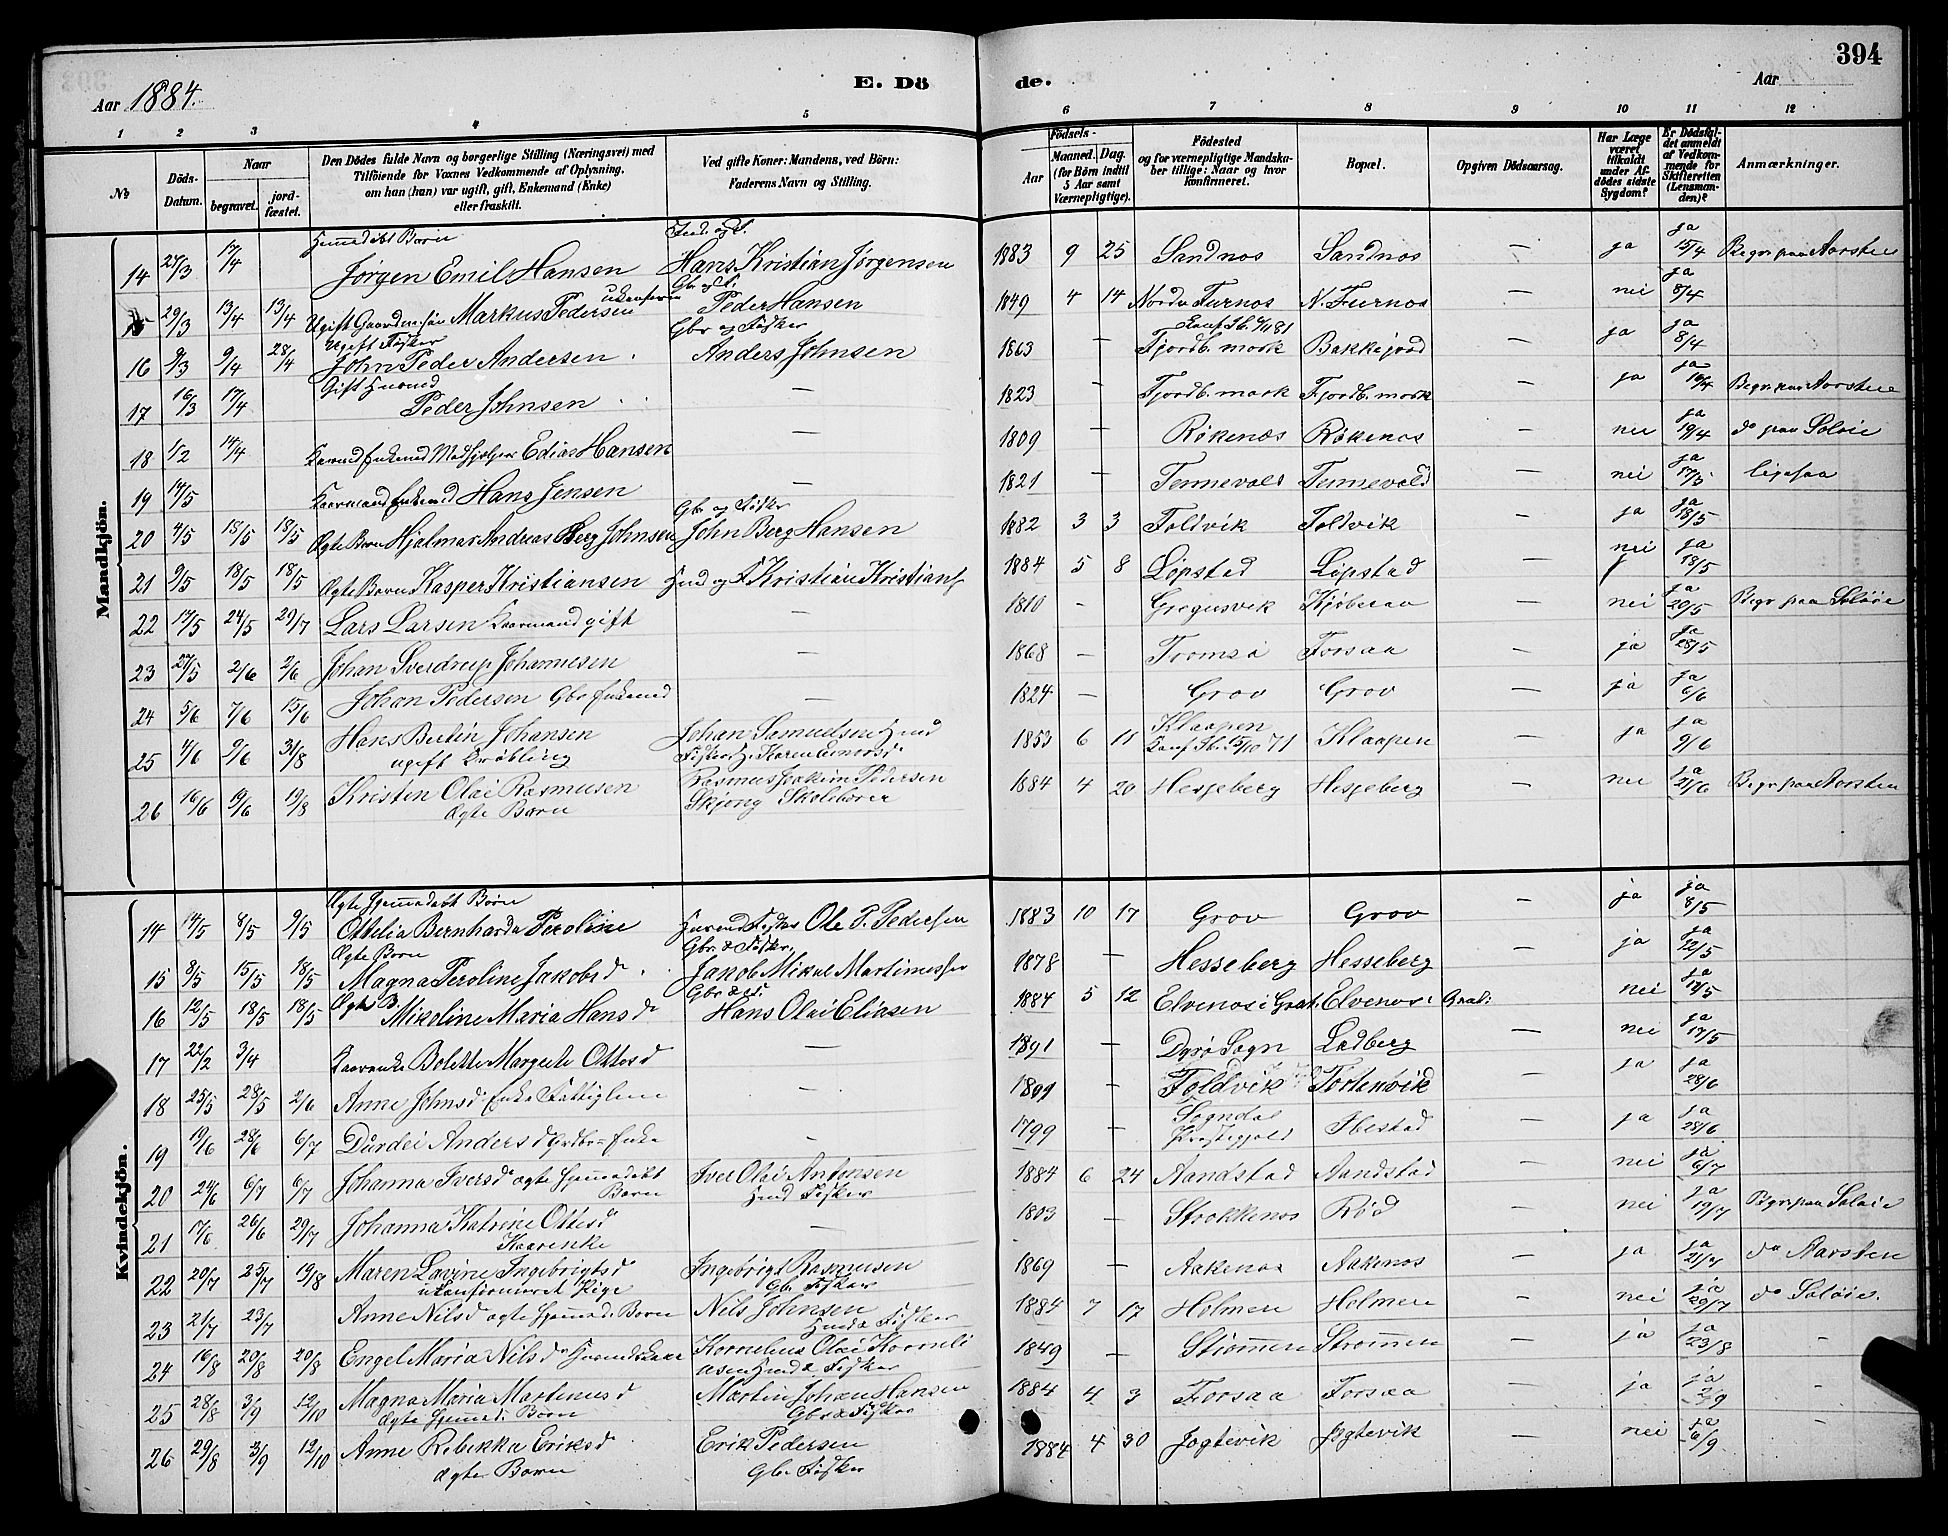 394
Aar 1884.
E. Dö de.
Aar
1 2 3 4 5 6 7 8 9 10 11 12
No
Döds-Datum.
Naar
begravet.
jordfæstet.
Den Dödes fulde Navn og borgerlige Stilling (Næringsvei) med Tilföiende for Voxnes Vedkommende af Oplysning, om han (han) var ugift, gift, Enkemand (Enke) eller fraskilt.
Ved gifte Koner: Mandens, ved Börn: Faderens Navn og Stilling.
Födsels-
Aar
Maaned. Dag.
(for Börn indtil 5 Aar samt Værnepligtige).
Födested og for værnepligtige Mandskaber tillige: Naar og hvor konfirmeret.
Bopæl.
Opgiven Dödsaarsag.
Har Læge været tilkaldt under Afdödes sidste Sygdom?
Er Dödsfaldet anmeldt af Vedkommende for Skifteretten (Lensmanden)?
Anmærkninger.
Mandkjön.
14 27/3 17/4 Hjemmedøbt Barn Jørgen Emil Hansen Hans Kristian Jørgensen 1883 9 25 Sandnos Sandnos — ja ja 15/4 Begr paa Aarsten
29/3 13/4 13/4 Ugift Gaardmsøn Markus Pedersen Gbr og F. Peder Hansen 1849 4 14 Nordre Furnos N. Furnos — nei ja 8/4
16 9/3 9/4 28/4 Ugift Fisker John Peder Andersen Gbr og Fisker Anders Johnsen 1863 — Fjordb. mark Bakkejord — ja ja 8/4
17 16/3 17/4 Gift Husmd Peder Johnsen — 1823 — Fjordb. mark Fjordb. mark — ja ja 16/4 Begr. paa Aarsten
18 1/2 14/4 Edias Hansen — 1809 — Røkenæs Røkenos — nei ja 19/4 do paa Soløie
19 14/5 Kaarmand Enkemd Hans Jensen — 1821 — Tennevold Tennevold — nei ja 17/5
20 4/5 18/5 18/5 Ægte Barn Hjalmar Andreas Berg Johnsen Gbr og Fisker John Berg Hansen 1882 3 3 Foldvik Foldvik — ja ja 18/5
21 9/5 18/5 18/5 Ægte Barn Kasper Kristiansen Husmd og F Kristian Kristians 1884 5 8 Løpstad Løpstad — nei ja 18/5
22 17/5 24/5 29/7 Lars Larsen Kaarmand gift — 1810 — Gregusvik — nei ja 20/5 Begr paa Soløie
23 27/5 2/6 2/6 Johan Sverdrup Johannesen — 1868 — Tromsø Forsaa — ja ja 28/5
24 5/6 7/6 15/6 Johan Pedersen Gbr Enkemd — 1824 — Grov Grov — ja ja 6/6
25 4/6 9/6 31/8 Hans Bertin Johansen ugift Krøbling Johan Samuelsen Husmd Fisker 1853 6 11 Klaapen 15/10 71 Klaapen — ja ja 9/6
26 16/6 19/6 19/8 Kristen Olai Rasmusen Ægte Barn Rasmus Joakim Pedersen Skjong Skolelærer 1884 4 20 Hesseberg Hesseberg — nei ja 21/6 Begr paa Aarsten
Kvindekjön.
14 14/5 8/5 9/5 Ægte Hjemmedøbt Barn Ottelia Bernharda Peroline Husmand Fisker Ole P. Pedersen 1883 10 17 Grov Grov — ja ja 8/5
15 8/5 15/5 18/5 Ægte Barn Magna Peroline Jakobsd Gbr & Fisker Jakob Mikal Martinussen 1878 — Hesseberg Hesseberg — ja ja 12/5
16 12/5 18/5 18/5 Ægte B Mikoline Maria Hansd Gbr & F. Hans Olai Eliasen 1884 5 12 Elvenos i Grat. Elvenos i Grat. nei ja 14/5
17 22/2 3/4 Kaarenke Bolette Margrete Ottosd — 1891 — Dyrø Sogn Ladberg — nei ja 17/5
18 25/5 28/5 2/6 Anne Johnsd Enke Fattiglem — 1809 — Foldvik Fortenvik — ja ja 28/6
19 19/6 28/6 6/7 Durdei Andersd Grdbr Enke — 1799 — Sogndal Præstegjeld Ibestad — ja ja 28/6
20 24/6 6/7 6/7 Johanna Iversd ægte Hjemmedøbt Barn Iver Olai Antonsen Husmd Fisker 1884 6 24 Aandstad Aandstad — nei ja 6/7
21 17/6 26/6 29/7 Johanna Katrine Ottesd Kaarenke — 1803 — Strokkenos Rød — nei ja 19/7 Begr. paa Soløie
22 20/7 25/7 19/8 Maren Lavine Ingebrigtsd ukonfirmeret Pige Ingebrigt Rasmusen Gbr Fisker 1869 — Aakenos Aakenos — ja ja 21/7 do Aarsten
23 21/7 23/7 Anne Nilsd ægte Hjemmed. Barn Nils Johnsen Husmd & Fisker 1884 7 17 Holmen Holmen — nei ja 29/7 do Soløie.
24 16/8 20/8 20/8 Engel Maria Nilsd Kornelius Olai Korneliusen Husmd & Fisker 1849 — Strømmen Strømmen — ja ja 23/8 -
25 28/8 3/9 12/10 Magna Maria Martinusd Ægte Hjemmed. Barn Martin Johan Hansen Gbr & Fisker 1884 4 3 Forsaa Forsaa — ja ja 2/9 -
26 29/8 3/9 12/10 Anne Rebekka Eriksd Ægte Barn Erik Pedersen Gbr Fisker 1884 4 30 Jogtevik Jogtevik — nei ja 6/9